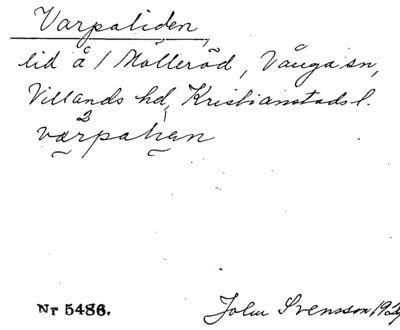 Varpaliden,
lid å 1 Mölleröd, Vånga sn,
Villands hd, Kristianstads l.
Nr 5486. John Svensson